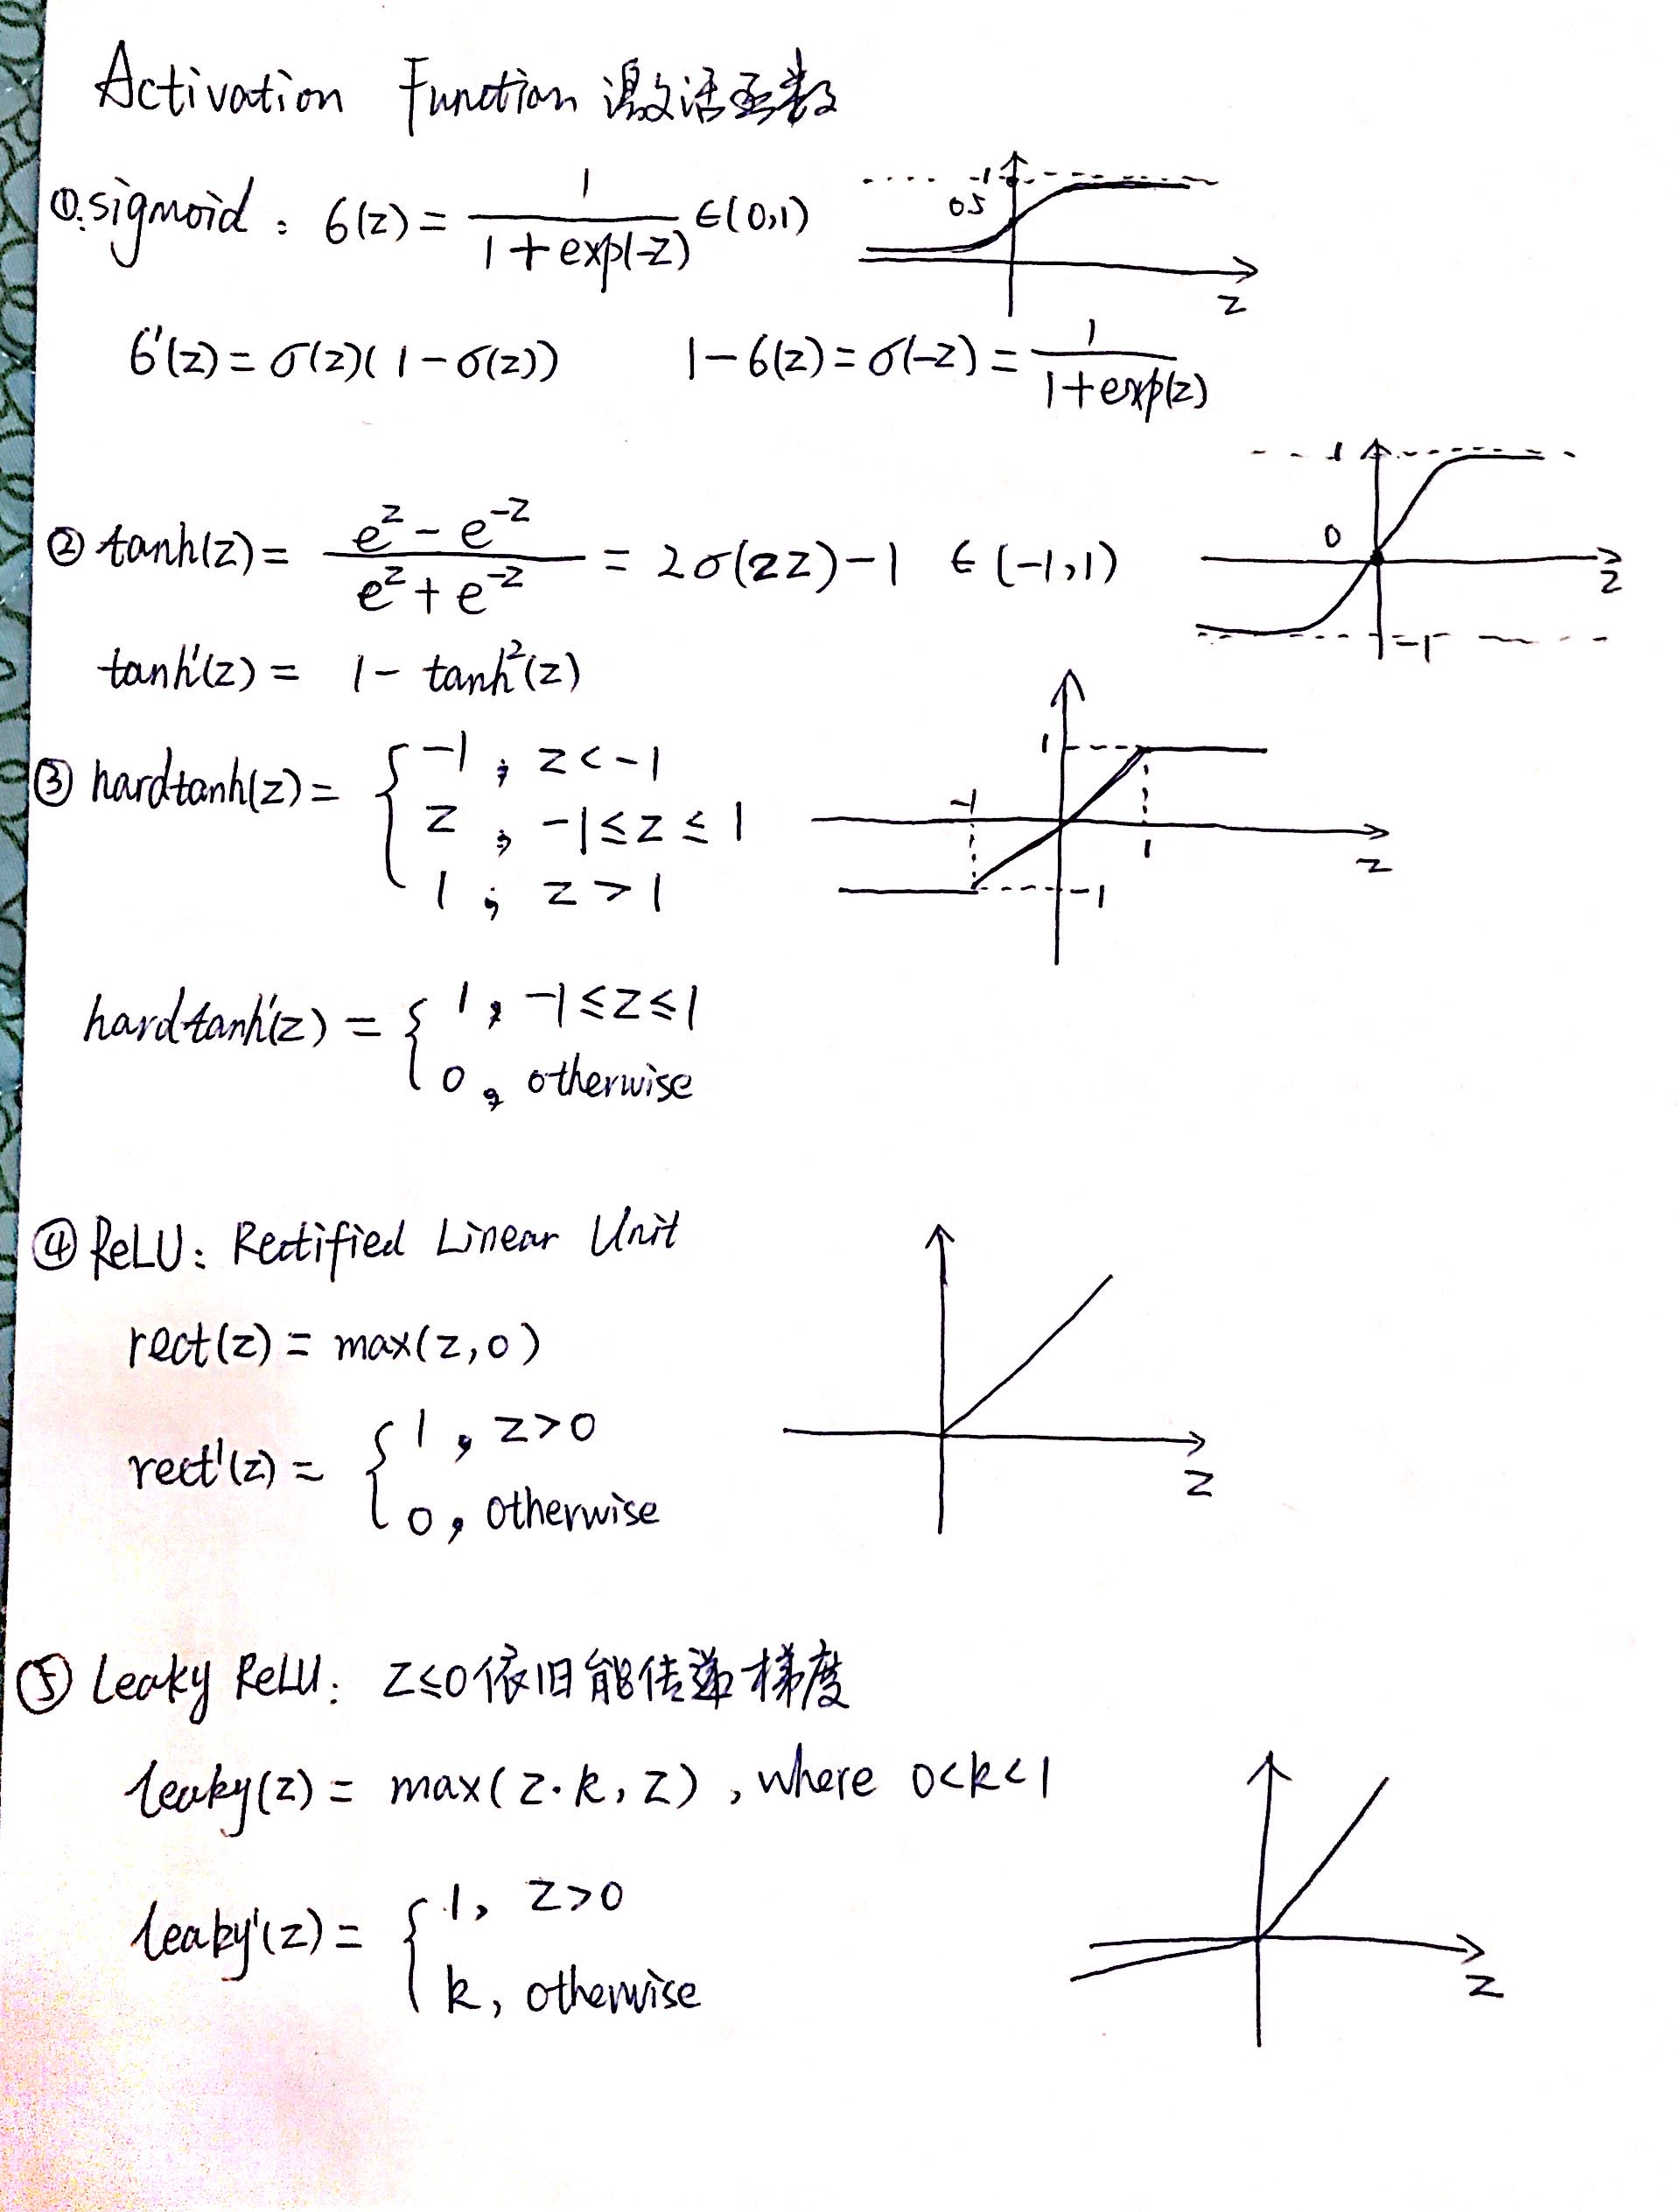 Activation Function 激活函数
①.sigmoid: σ(z) = 1 / (1 + exp(-z)) ∈ (0,1)
1
0.5
z
σ'(z) = σ(z)(1 - σ(z)) 1 - σ(z) = σ(-z) = 1 / (1 + exp(z))
② tanh(z) = (e^z - e^-z) / (e^z + e^-z) = 2σ(2z) - 1 ∈ (-1,1)
1
0
z
-1
tanh'(z) = 1 - tanh²(z)
③ hardtanh(z) = { -1, z < -1
z, -1 ≤ z ≤ 1
1, z > 1
1
-1
1
z
-1
hardtanh'(z) = { 1, -1 ≤ z ≤ 1
0, otherwise
④ ReLU: Rectified Linear Unit
rect(z) = max(z, 0)
rect'(z) = { 1, z > 0
0, otherwise
z
⑤ Leaky ReLU: z ≤ 0 依旧能传递梯度
leaky(z) = max(z·k, z), where 0<k<1
leaky'(z) = { 1, z > 0
k, otherwise
z